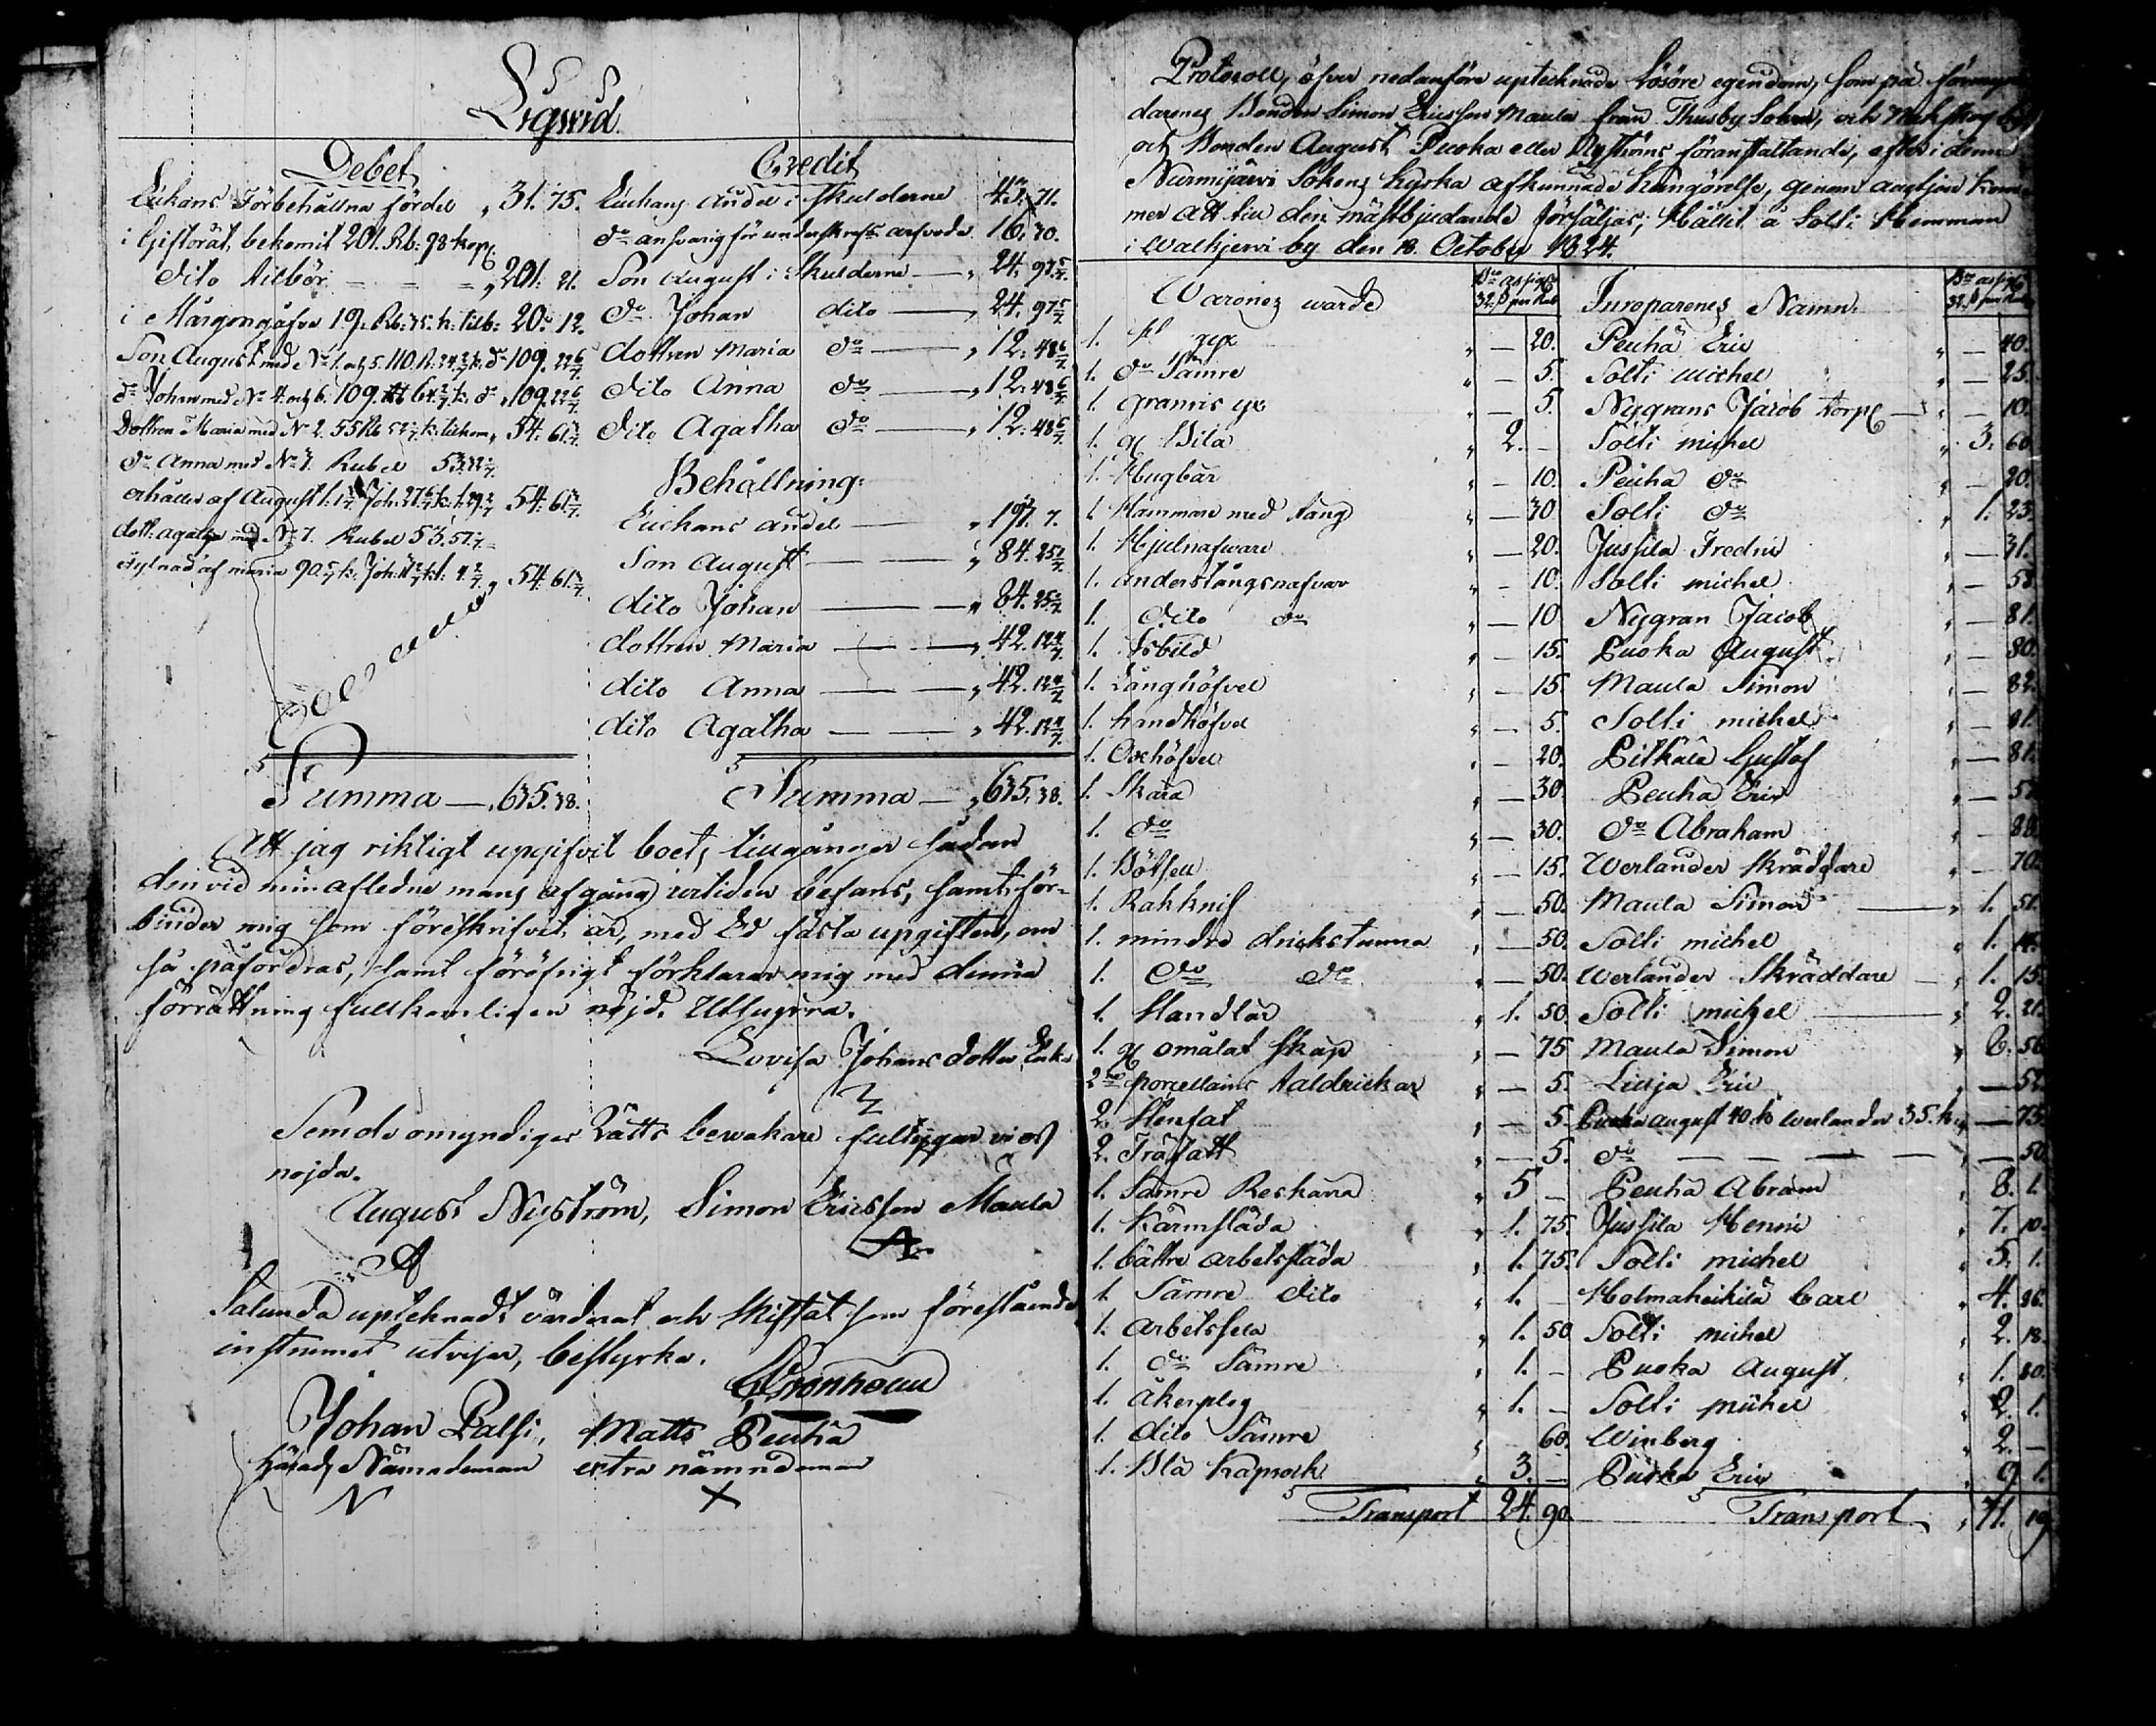 Liqwid.
Debet
Enkans Förbehållna fördel " 31: 75.
i Giftorät, bekomit 201. Rb: 98 kop
dito tilbör " 201: 21.
i Margongåfva 19. Rb: 75. k: tilb: 20: 12.
Son August med No 1. och 5. 110. R: 24 2/7 k: do 109. 22 6/7
do Johan med No 4. och 6. 109. Rb 64 2/7 k: do " 109. 22 6/7
Dottren Maria med No 2. 55 Rb k: tilkom " 54: 61 3/7
do Anna med No 3. Rubel 53.
erhåller af August Joh: 54: 61 3/7
dott: agatha med No 7. Rubel 53. 57
af maria 90. 5/7 k: Joh: " 54: 61 3/7
Summa — " 635. 38.
Credit
Enckans andel i skulderne 43. 71.
do answarig för underskrefs arfvode 16: 30.
Son August i Skulderne — " 24. 97 5/7
do Johan dito — " 24. 97 5/7
dottren Maria do — " 12. 48 6/7
dito Anna do — " 12: 48 6/7
dito Agatha do — " 12: 48 6/7
Behållning:
Enckans andel — " 193. 7.
Son August — " 84. 25 1/7
dito Johan — " 84. 25 1/7
dottren Maria — " 42. 12 4/7
dito Anna — " 42. 12 4/7
dito Agatha — " 42. 12 4/7
Summa — " 635. 38.
Att jag riktigt upgifvit boets tillgångar sådan
den vid min afledne mans afgång) befans, samt för-
binder mig som föreskrifvit är, med Ed fästa upgiften, om
så påfordras, samt föröfrigt förklarar mig med denna
förrättning fullkomligen nöjd. Ut supra.
Lovisa Johans dotter Enka
Som de omyndiges Rätts bewakare vi oss
nojda.
August Nyström, Simon Ericsson Maula
Sålunda uptecknadt värderat och Skiftat som förestående
instrument utvisar, bestyrka.
Johan Palsi, Matts Peuhä
Härads Nämndeman extra nämndeman
N X
Protocoll, öfver nedanföre uptecknade Lösöre egendom, som på förmyn
darenes Bonden Simon Ericsson Maula från Thusby Sokn, och by
och Bonden August Puoka eller Nyströms föranstaltande, efter i denne
Nurmijärvi Sokens kyrka afkunnade kungörelse, genom auction kom
mer att till den mästbjudande försäljas; Hållit å Solti Hemman
i Walkjervi by den 18. October 1824.
Warones wärde
Inroparenes Namn.
1. yx " — 20. Peuhä Eric " — 40.
1. do Sämre " — 5. Solti michel " — 25.
1. yx " — 5. Nygrans Jacob torp — " — 10.
1. g Bila " 2. — Solti michel " 3. 60
1. Hugbår " — 10. Peuha do " — 20.
1. Hammare med tång " — 30 Solti do " 1. 23.
1. Hjulnafware " — 20. Jussila Fredric " — 31.
1. anderstångsnafvar " — 10. Solti michel " — 58
1. dito do " — 10 Nygran Jacob " — 81.
1. Isbild " — 15. Puoka August " — 80.
1. Långhöfvel " — 15. Maula Simon " — 82.
1. handhöfvel " — 5. Solti michel " — 81.
1. Oxhöfvel " — 20. Pitkälä Gustaf " — 81.
1. Skära " — 30. Peuha Eric " — 57.
1. do " — 30. do Abraham " — 80.
1. " — 15. Werlander Skräddare " — 70.
1. Rakknif " — 50. Maula Simon — " 1. 51.
1. mindre drickstunna " — 50. Solti michel " 1. 14.
1. do do " — 50. Werlander Skräddare — " 1. 15.
1. " 1. 50. Solti michel — " 2. 21.
1. g omålat skåp " — 75 Maula Simon " 6. 56
2ne porcellains taldrickar " — 5. Lilja Eric " — 52.
2. Stenfat " — 5. Puoka august 40. k Werlander 35. k " — 75.
2. Träfatt " — 5. do — — — — " — 50.
1. Sämre Reskärra " 5 — Peuha Abram " 8. 1.
1. Kärmsläda " 1. 75. Jussila Henric " 7. 10.
1. bättre arbetsläda " 1. 75. Solti michel " 5. 1.
1. Sämre dito " 1. — Holmaheikilä Carl " 4. 86.
1. arbetssela " 1. 50 Solti michel " 2. 18.
1. do Sämre " 1. — Puoka August " 1. 80.
1. åkerplog " 1. — Solti michel " 2. 1.
1. dito Sämre " 60. Winberg " 2. —
1. Blå kaprock " 3. — Puoka Eric " 9 1.
Transport 24. 90. Transport " 71. 19